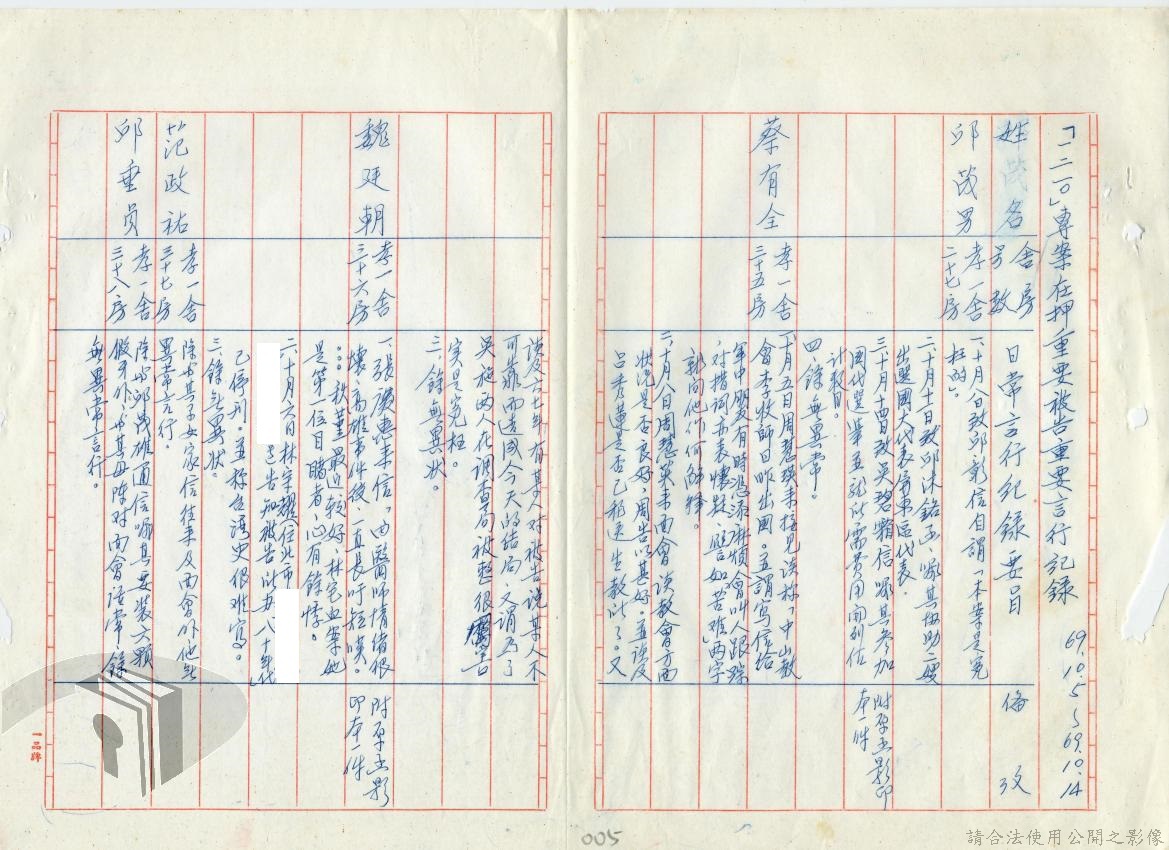 「一二一〇」專案在押重要被告重要言行記錄 69.10.5~69.10.14
姓名 舍房號數 日常言行紀錄要目 備攷
邱茂男 孝一舍二十七房
一、十月八日致邱彰信自謂「本案是冤
枉的」。
二、十月十一日致邱沐銘函,囑其協助二嫂
出選國大代表屏東區代表。
三、十月十四日致吳碧霜信囑其參加
國代選舉並就所需費用開列估
計數目。 附原函影印本一件
四、餘無異常。
蔡有全 孝一舍三十五房
一、十月五日周慧瑛來接見談称「中山教
會李牧師日昨出國。並謂寫信給
軍中朋友有時憑添麻煩,會叫人跟踪
,對措詞亦表懷疑,譬如「苦难」兩字
都问他作何解釋。
二、十月八日周慧瑛來面會談教會方面
狀況是否良好,周告以甚好。並談及
呂秀蓮是否已移送生教所了。又
談及六七年有某人对被告説某人不
可靠而造成今天的結局,又謂為了
吳 施两人在調查局被整很
实是冤枉。
三、餘無異狀。
魏廷朝 孝一舍三十六房
一、張慶惠來信「內
懷,高雄事件後、一直長吁短嘆。
。。。秋堇最近較好,林宅血案她
是第一位目睹者,心有餘悸。 附原函影印本一件
二、十月六日林宗耀(住北市
)告知被告所办八十年代」
已停刊。並称台湾史很难寫。
三、餘無異狀。
范政祐 孝一舍三十七房
除與其子女家信往來及面會外他無
異常言行。
邱垂貞 孝一舍三十八房
除與邱茂雄通信囑其要裝六顆
假牙外,与其母陈对面會話常,餘
無異常言行。
一品牌
005
請合法使用公開之影像